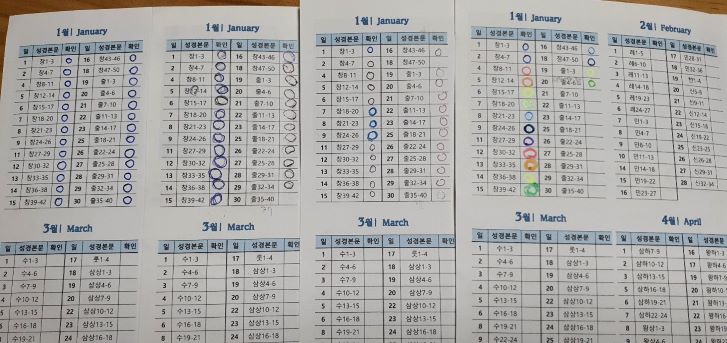 1월| January
일 성경본문 확인 일 성경본문 확인
1 창1-3 16 창43-46
2 창4-7 18 창47-50
4 창8-11 19 출1-3
5 창12-14 20 출4-6
6 창15-17 21 출7-10
7 창18-20 22 출11-13
8 창21-23 23 출14-17
9 창24-26 25 출18-21
11 창27-29 26 출22-24
12 창30-32 27 출25-28
13 창33-35 28 출29-31
14 창36-38 29 출32-34
15 창39-42 30 출35-40
3월| March
일 성경본문 확인 일 성경본문
1 수1-3 17 룻1-4
2 수4-6 18 삼상1-3
4 수7-9 19 삼상4-6
수10-12 20 삼상7-9
수13-15 22 삼상10-12
수16-18 23 삼상13-15
수19-21 24 삼상16-18
1월| January
일 성경본문 확인 일 성경본문 확인
1 창1-3 16 창43-46
2 창4-7 18 창47-50
4 창8-11 19 출1-3
5 창12-14 20 출4-6
6 창15-17 21 출7-10
7 창18-20 22 출11-13
8 창21-23 23 출14-17
9 창24-26 25 출18-21
11 창27-29 26 출22-24
12 창30-32 27 출25-28
13 창33-35 28 출29-31
14 창36-38 29 출32-34
15 창39-42 30 출35-40
3월| March
일 성경본문 확인 일 성경본문 확인
1 수1-3 17 룻1-4
2 수4-6 18 삼상1-3
4 수7-9 19 삼상4-6
5 수10-12 20 삼상7-9
6 수13-15 22 삼상10-12
7 수16-18 23 삼상13-15
8 수19-21 24 삼상16-18
1월| January
일 성경본문 확인 일 성경본문 확인
1 창1-3 16 창43-46
2 창4-7 18 창47-50
4 창8-11 19 출1-3
5 창12-14 20 출4-6
6 창15-17 21 출7-10
7 창18-20 22 출11-13
8 창21-23 23 출14-17
9 창24-26 25 출18-21
11 창27-29 26 출22-24
12 창30-32 27 출25-28
13 창33-35 28 출29-31
14 창36-38 29 출32-34
15 창39-42 30 출35-40
3월| March
일 성경본문 확인 일 성경본문 확인
1 수1-3 17 룻1-4
2 수4-6 18 삼상1-3
4 수7-9 19 삼상4-6
5 수10-12 20 삼상7-9
6 수13-15 22 삼상10-12
7 수16-18 23 삼상13-15
8 수19-21 24 삼상16-18
1월| January
일 성경본문 확인 일 성경본문 확인
1 창1-3 16 창43-46
2 창4-7 18 창47-50
4 창8-11 19 출1-3
5 창12-14 20 출4-6
6 창15-17 21 출7-10
7 창18-20 22 출11-13
8 창21-23 23 출14-17
9 창24-26 25 출18-21
11 창27-29 26 출22-24
12 창30-32 27 출25-28
13 창33-35 28 출29-31
14 창36-38 29 출32-34
15 창39-42 30 출35-40
2월| February
일 성경본문 확인 일 성경본문 확인
1 레1-5 17 민28-31
2 레6-10 18 민32-36
3 레11-13 19 신1-4
4 레14-18 20 신5-8
5 레19-23 21
6 레24-27 22 신12-14
8 민4-7 24 신19-22
9 민8-10 25 신23-25
10 민11-13 26
11 민14-18 27 신29-31
15 민19-22 28 신32-34
16 민23-27
3월| March
일 성경본문 확인 일 성경본문 확인
1 수1-3 17 룻1-4
2 수4-6 18 삼상1-3
4 수7-9 19 삼상4-6
5 수10-12 20 삼상7-9
6 수13-15 22 삼상10-12
7 수16-18 23 삼상13-15
8 수19-21 24 삼상16-18
9 수22-24
4월| April
일 성경본문 확인 일 성경본문
1 삼하7-9 16
2 삼하10-12 17
3 삼하13-15
4 삼하16-18
6 삼하19-21
7 삼하22-24
8 왕상1-3